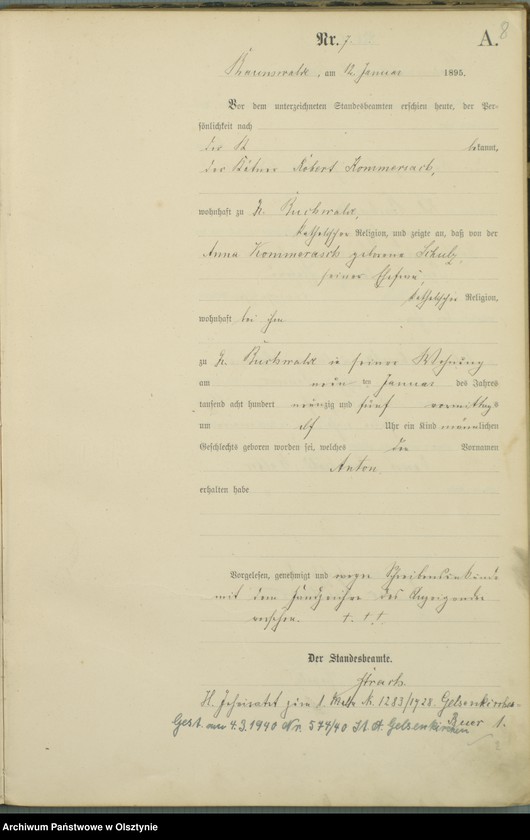 Nr. 7.
A. 8
am 12 Januar 1895.
Vor dem unterzeichneten Standesbeamten erschien heute, der Per-
sönlichkeit nach
der bekannt,
der Kätner Robert Kommerasch,
wohnhaft zu Buchwald,
katholischer Religion, und zeigte an, daß von der
Anna Kommerasch geborene Schulz,
seiner Ehefrau,
katholischer Religion,
wohnhaft bei ihm
zu Buchwald in seiner Wohnung
am neun ten Januar des Jahres
tausend acht hundert neunzig und fünf vormittags
um elf Uhr ein Kind männlichen
Geschlechts geboren worden sei, welches den Vornamen
Anton
erhalten habe
Vorgelesen, genehmigt und wegen Schreibensunkunde
mit dem Handzeichen des Anzeigenden
versehen. † † †
Der Standesbeamte.
1. N. 1283/1928 Gelsenkirchen-
Buer 1.
Gest. am 4.3.1940 Nr. 574/40 St. A. Gelsenkirchen
Archiwum Państwowe w Olsztynie